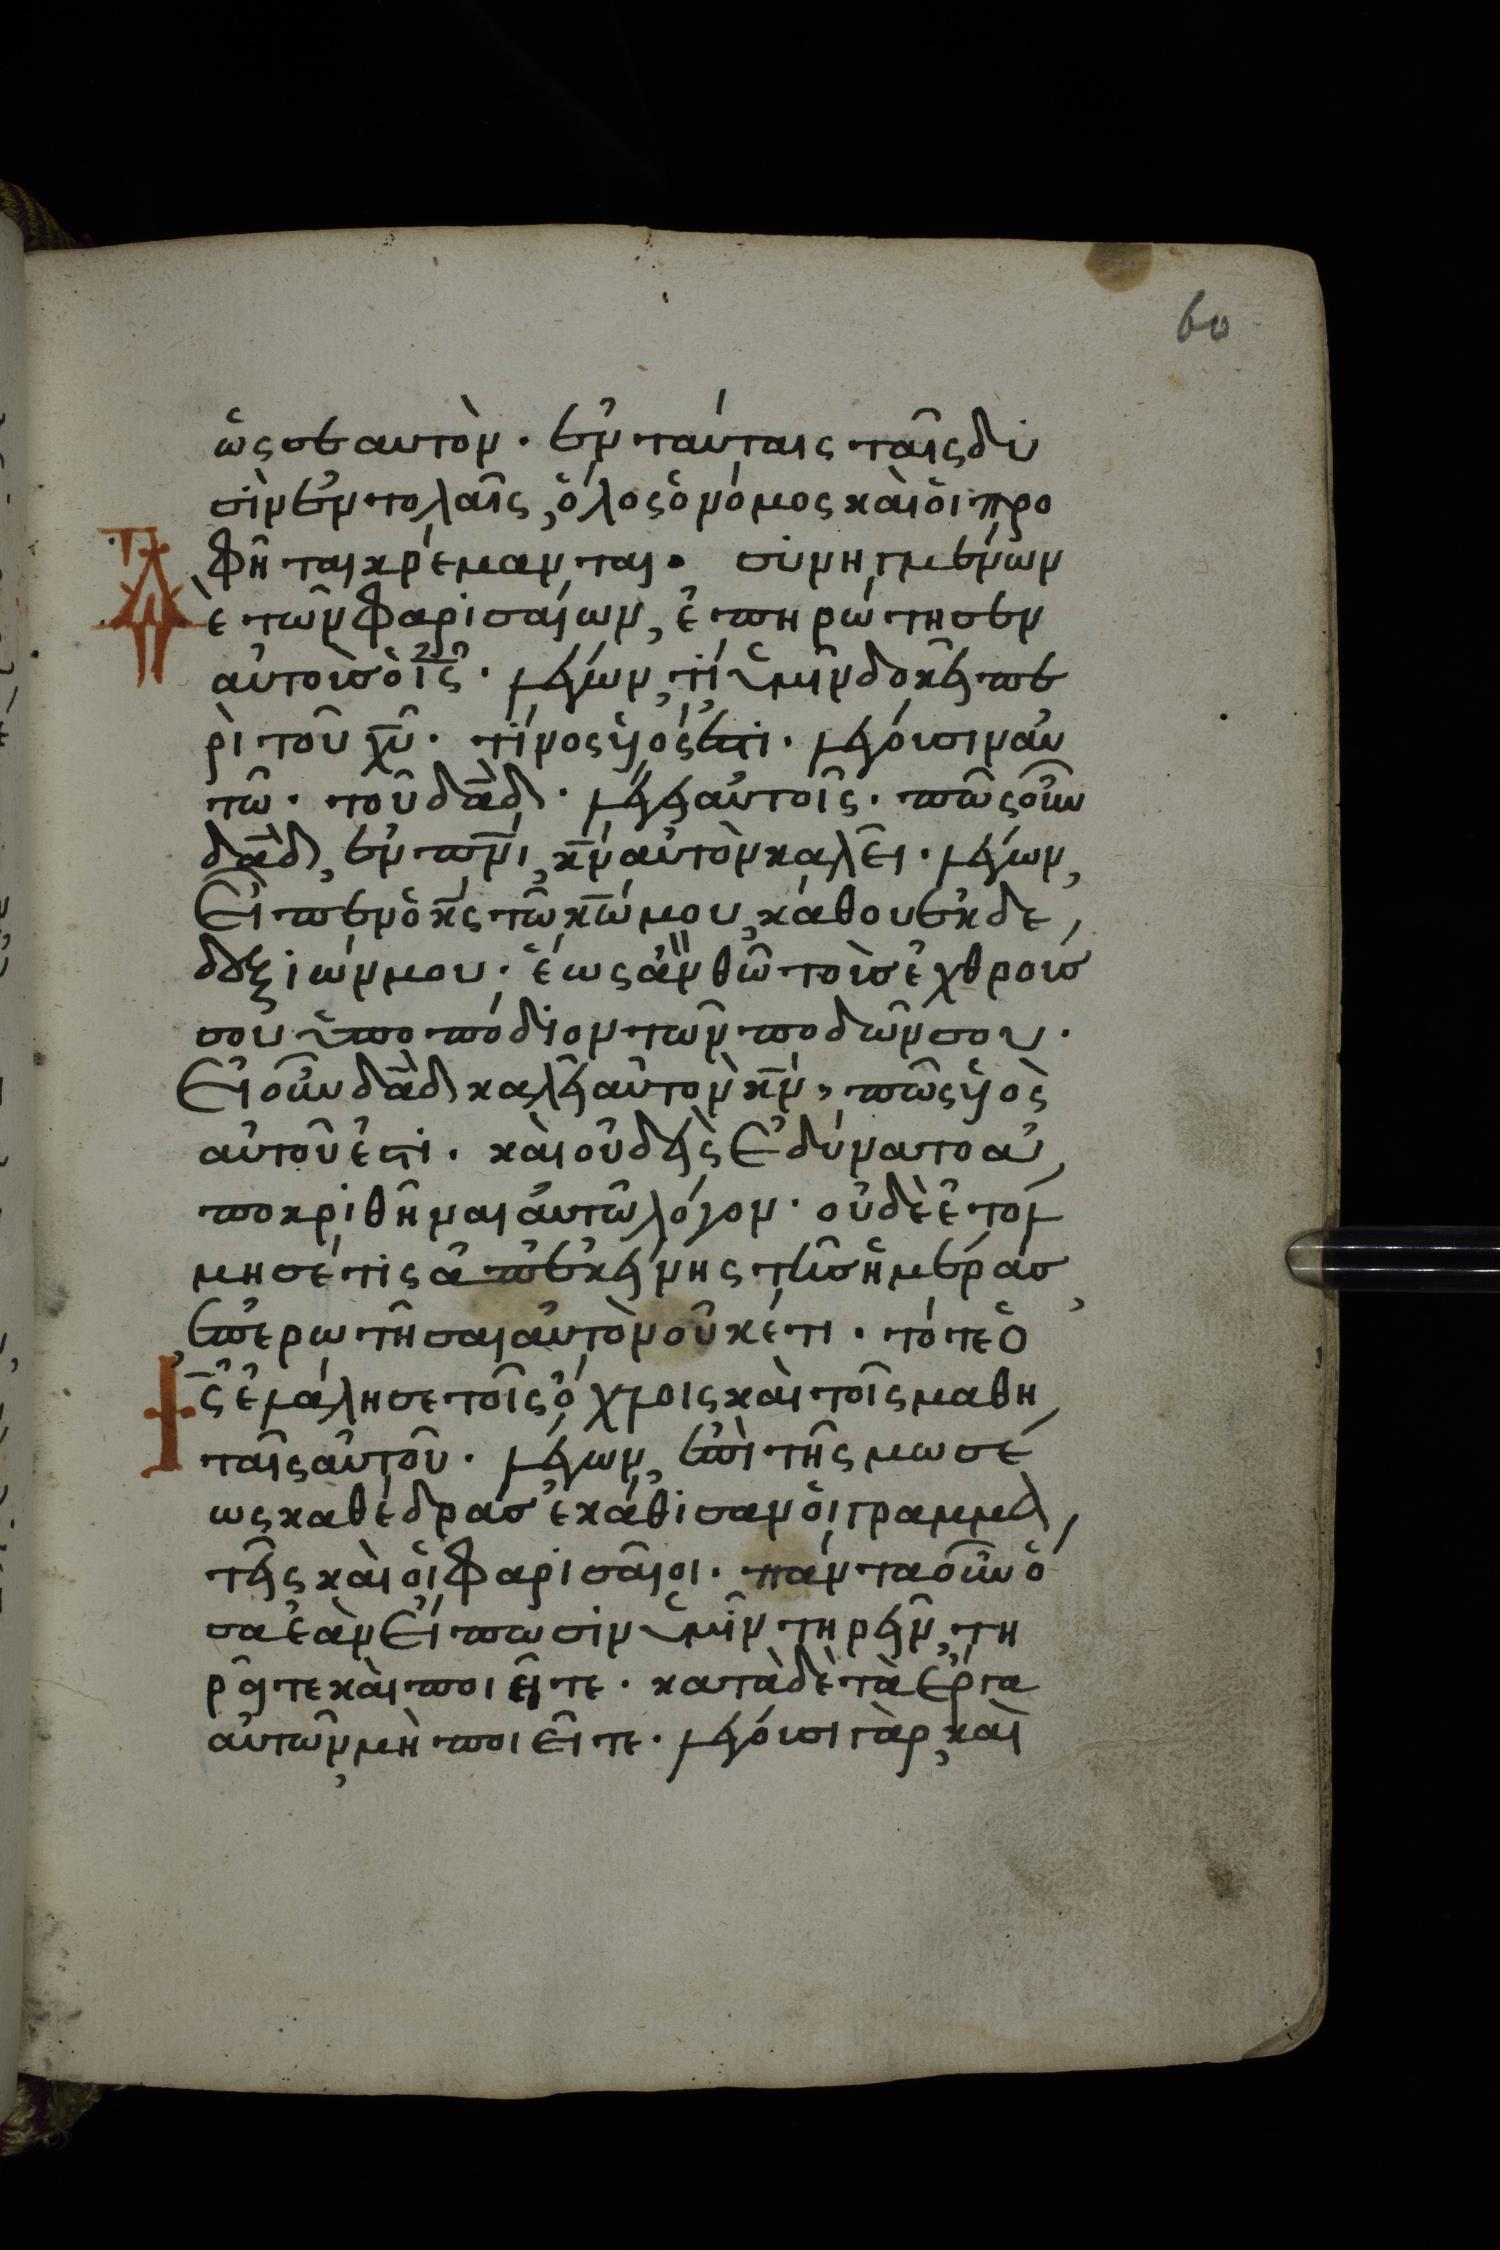 60
ὡς σεαυτὸν · ἐν ταύταις ταῖς δυ
σὶν ἐντολαῖς, ὅλος ὁ νόμος καὶ οἱ προ
φῆται κρέμανται · συνηγμένων
δὲ τῶν φαρισαίων, ἐπηρώτησεν
αὐτοὺσ ὁ ι̅ς̅ · λέγων, τί ὑμῖν δοκεῖ πε
ρὶ τοῦ χ̅υ̅ · τίνος υἱός ἐστι · λέγουσιν αὐ
τῶ · τοῦ δ̅α̅δ̅ · λέγει αὐτοῖς · πῶς οὖν
δ̅α̅δ̅, ἐν π̅ν̅ι̅, κ̅ν̅ αὐτὸν καλεῖ · λέγων,
Εἶπεν ὁ κ̅ς̅ τῶ κ̅ω̅ μου, κάθου ἐκ δε
ξιῶν μου · ἕως ἂν θῶ τοὺσ ἐχθρούσ
σου ὑποπόδιον τῶν ποδῶν σου ·
Εἰ οὖν δ̅α̅δ̅ καλεῖ αὐτὸν κ̅ν̅, πῶς υἱὸς
αὐτοῦ ἐστι · καὶ οὐδεὶς ἐδύνατο ἀ
ποκριθῆναι αὐτῶ λόγον · οὐδὲ ἐτόλ
μησέ τις ἀπ' ἐκείνης τῆσ ἡμέρασ
ἐπερωτῆσαι αὐτὸν οὐκέτι · τότε ὁ
ι̅ς̅ ἐλάλησε τοῖς ὄχλοις καὶ τοῖς μαθη
ταῖς αὐτοῦ · λέγων, ἐπὶ τῆς μωσέ
ως καθέδρασ ἐκάθισαν οἱ γραμμα
τεῖς καὶ οἱ φαρισαῖοι · πάντα οὖν ὅ
σα ἐὰν εἴπωσιν ὑμῖν τηρεῖν, τη
ρεῖτε καὶ ποιεῖτε · κατὰ δὲ τὰ ἔργα
αὐτῶν, μὴ ποιεῖτε · λέγουσι γὰρ, καὶ